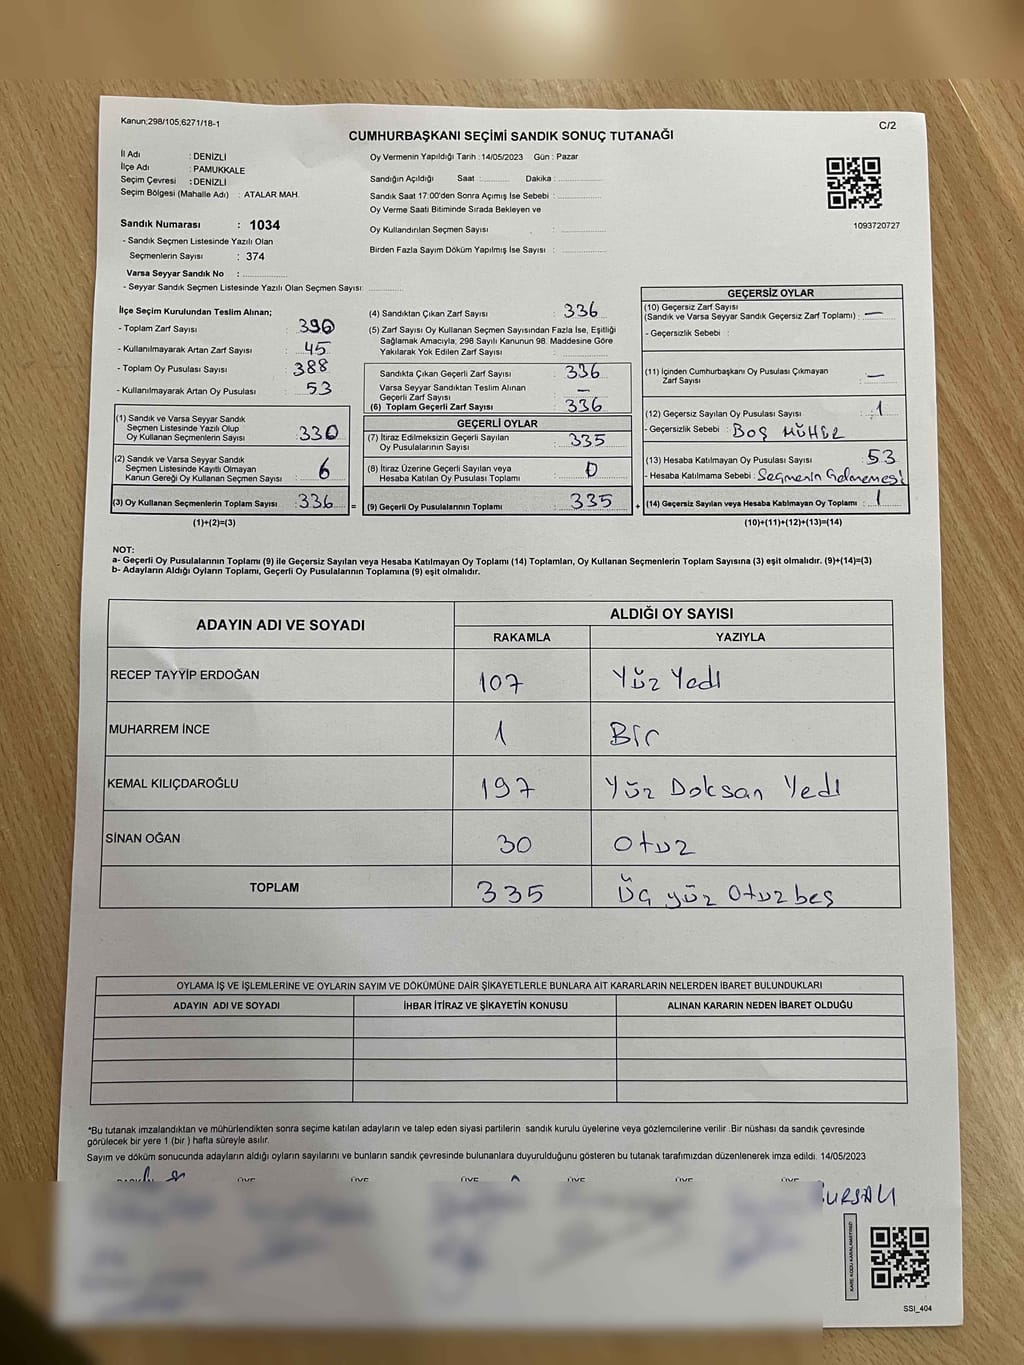 Kanun;298/105;6271/18-1
C/2
CUMHURBAŞKANI SEÇİMİ SANDIK SONUÇ TUTANAĞI
İl Adı : DENİZLİ
İlçe Adı : PAMUKKALE
Seçim Çevresi : DENİZLİ
Seçim Bölgesi (Mahalle Adı) : ATALAR MAH.
Oy Vermenin Yapıldığı Tarih : 14/05/2023 Gün : Pazar
Sandığın Açıldığı Saat : Dakika :
Sandık Saat 17:00'den Sonra Açımış İse Sebebi :
Oy Verme Saati Bitiminde Sırada Bekleyen ve
Oy Kullandırılan Seçmen Sayısı :
Birden Fazla Sayım Döküm Yapılmış İse Sayısı :
1093720727
Sandık Numarası : 1034
- Sandık Seçmen Listesinde Yazılı Olan
Seçmenlerin Sayısı : 374
Varsa Seyyar Sandık No :
- Seyyar Sandık Seçmen Listesinde Yazılı Olan Seçmen Sayısı:
İlçe Seçim Kurulundan Teslim Alınan;
- Toplam Zarf Sayısı : 390
- Kullanılmayarak Artan Zarf Sayısı : 45
- Toplam Oy Pusulası Sayısı : 388
- Kullanılmayarak Artan Oy Pusulası : 53
(1) Sandık ve Varsa Seyyar Sandık
Seçmen Listesinde Yazılı Olup
Oy Kullanan Seçmenlerin Sayısı : 330
(2) Sandık ve Varsa Seyyar Sandık
Seçmen Listesinde Kayıtlı Olmayan
Kanun Gereği Oy Kullanan Seçmen Sayısı : 6
(3) Oy Kullanan Seçmenlerin Toplam Sayısı : 336 =
(1)+(2)=(3)
(4) Sandıktan Çıkan Zarf Sayısı : 336
(5) Zarf Sayısı Oy Kullanan Seçmen Sayısından Fazla İse, Eşitliği
Sağlamak Amacıyla, 298 Sayılı Kanunun 98. Maddesine Göre
Yakılarak Yok Edilen Zarf Sayısı :
Sandıkta Çıkan Geçerli Zarf Sayısı : 336
Varsa Seyyar Sandıktan Teslim Alınan
Geçerli Zarf Sayısı : —
(6) Toplam Geçerli Zarf Sayısı : 336
GEÇERLİ OYLAR
(7) İtiraz Edilmeksizin Geçerli Sayılan
Oy Pusulalarının Sayısı : 335
(8) İtiraz Üzerine Geçerli Sayılan veya
Hesaba Katılan Oy Pusulası Toplamı : 0
(9) Geçerli Oy Pusulalarının Toplamı : 335 +
GEÇERSİZ OYLAR
(10) Geçersiz Zarf Sayısı
(Sandık ve Varsa Seyyar Sandık Geçersiz Zarf Toplamı) : —
- Geçersizlik Sebebi :
(11) İçinden Cumhurbaşkanı Oy Pusulası Çıkmayan
Zarf Sayısı : —
(12) Geçersiz Sayılan Oy Pusulası Sayısı : 1
- Geçersizlik Sebebi : BOŞ MÜHÜR
(13) Hesaba Katılmayan Oy Pusulası Sayısı : 53
- Hesaba Katılmama Sebebi : Seçmenin Gelmemesi
(14) Geçersiz Sayılan veya Hesaba Katılmayan Oy Toplamı : 1
(10)+(11)+(12)+(13)=(14)
NOT:
a- Geçerli Oy Pusulalarının Toplamı (9) ile Geçersiz Sayılan veya Hesaba Katılmayan Oy Toplamı (14) Toplamları, Oy Kullanan Seçmenlerin Toplam Sayısına (3) eşit olmalıdır. (9)+(14)=(3)
b- Adayların Aldığı Oyların Toplamı, Geçerli Oy Pusulalarının Toplamına (9) eşit olmalıdır.
ADAYIN ADI VE SOYADI
ALDIĞI OY SAYISI
RAKAMLA YAZIYLA
RECEP TAYYİP ERDOĞAN 107 Yüz Yedi
MUHARREM İNCE 1 Bir
KEMAL KILIÇDAROĞLU 197 Yüz Doksan Yedi
SİNAN OĞAN 30 Otuz
TOPLAM 335 Üç yüz Otuz beş
OYLAMA İŞ VE İŞLEMLERİNE VE OYLARIN SAYIM VE DÖKÜMÜNE DAİR ŞİKAYETLERLE BUNLARA AİT KARARLARIN NELERDEN İBARET BULUNDUKLARI
ADAYIN ADI VE SOYADI İHBAR İTİRAZ VE ŞİKAYETİN KONUSU ALINAN KARARIN NEDEN İBARET OLDUĞU
*Bu tutanak imzalandıktan ve mühürlendikten sonra seçime katılan adayların ve talep eden siyasi partilerin sandık kurulu üyelerine veya gözlemcilerine verilir .Bir nüshası da sandık çevresinde
görülecek bir yere 1 (bir ) hafta süreyle asılır.
Sayım ve döküm sonucunda adayların aldığı oyların sayılarını ve bunların sandık çevresinde bulunanlara duyurulduğunu gösteren bu tutanak tarafımızdan düzenlenerek imza edildi. 14/05/2023
ÜYE ÜYE ÜYE ÜYE ÜYE ÜYE
BURSALI
KARE KODU KARALAMAYINIZ!
SSI_404